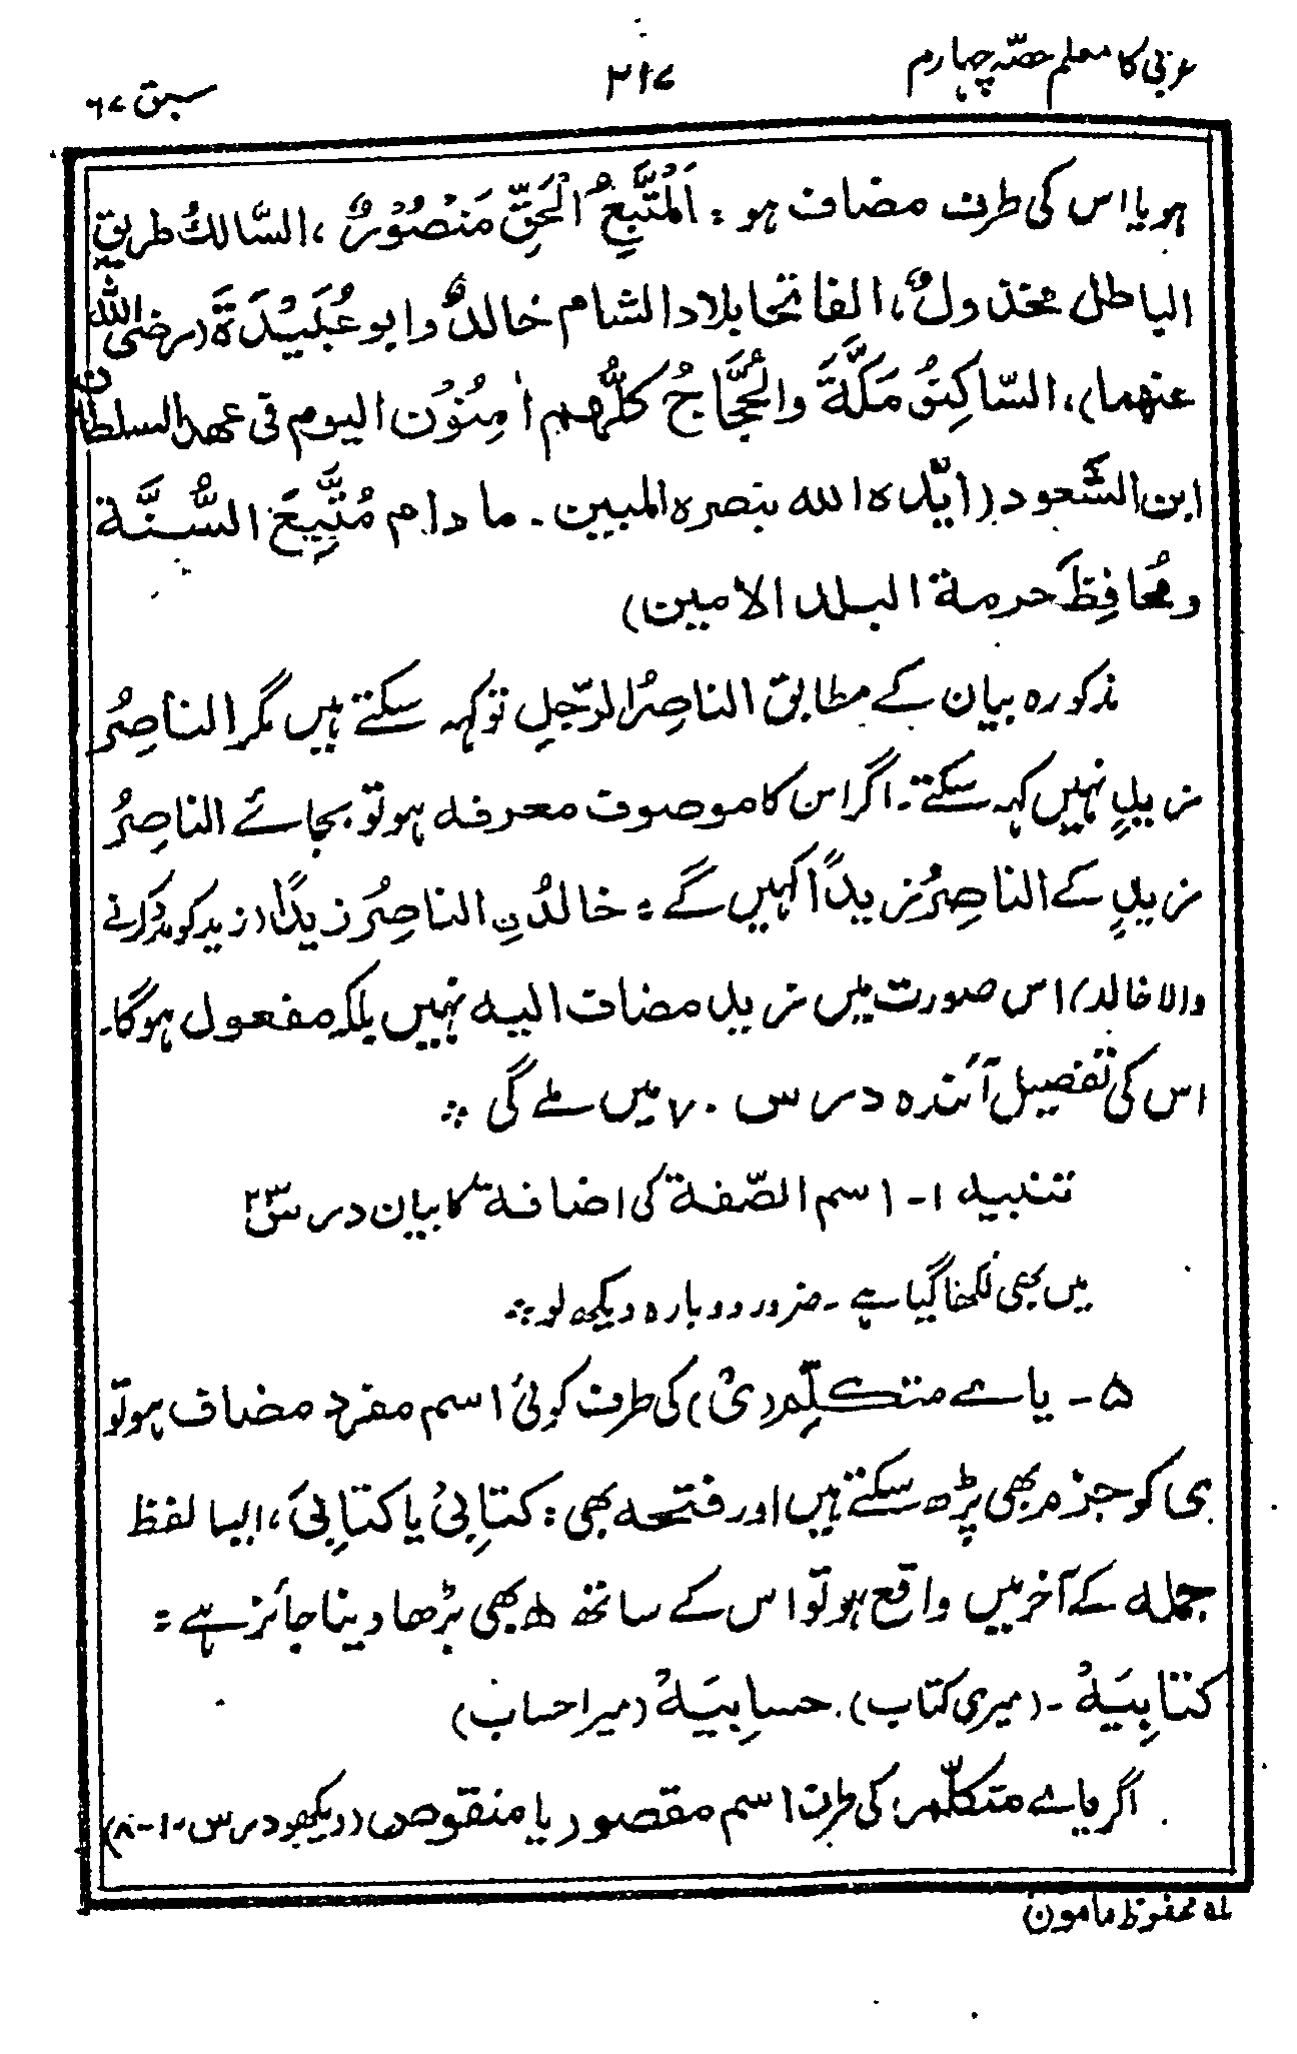 عربی کا معلم حصّہ چہارم
۲۱۷
سبق ۶۷
ہو یا اس کی طرف مضاف ہو : اَلْمُتَّبِعُ الْحَقِّ مَنْصُوْرٌ ، السَّالكُ طریقِ
الباطل مخذولٌ، الفاتحا بلاد الشام خالدٌ وابو عُبَيْدَةَ (رضی اللہ
عنهما)، السّاكِنُو مَكَّةَ والحُجَّاجُ كلُّهم اٰمِنُوْن اليوم فی عهد السلطان
ابن السَّعود (ايّده الله بنصره المبين ۔ ما دام مُتَّبِعَ السُّنَّة
ومُحافِظَ حرمة البلد الامين)
مذکورہ بیان کے مطابق الناصِرُ الرّجلِ تو کہہ سکتے ہیں مگر الناصِرُ
زیدٍ نہیں کہہ سکتے۔ اگر اس کا موصوف معرفہ ہو تو بجائے الناصِرُ
زیدٍ کے الناصِرُ زیدًا کہیں گے : خالدُنِ الناصِرُ زیدًا (زید کو مدد کرنے
والا خالد) اس صورت میں زید مضاف الیہ نہیں بلکہ مفعول ہوگا۔
اس کی تفصیل آئندہ درس ۷۰ میں ملے گی ؞
تنبیہ ۱- اسم الصّفة کی اضافة کا بیان درس ۲۳
میں بھی لکھا گیا ہے ۔ ضرور دوبارہ دیکھ لو ؞
۵ - یاے متكلّم (یْ) کی طرف کوئی اسم مفرد مضاف ہو تو
ی کو جزم بھی پڑھ سکتے ہیں اور فتحہ بھی : كتابِیْ یا كتابِیَ ، ایسا لفظ
جملہ کے آخر میں واقع ہو تو اس کے ساتھ ہ بھی بڑھا دینا جائز ہے :
كتابِيَهْ ۔ (میری کتاب)۔ حسابِيَهْ (میرا حساب)
اگر یاے متكلّم کی طرف اسم مقصور یا منقوص (دیکھو درس ۱۰-۸)
لہ محفوظ مامون